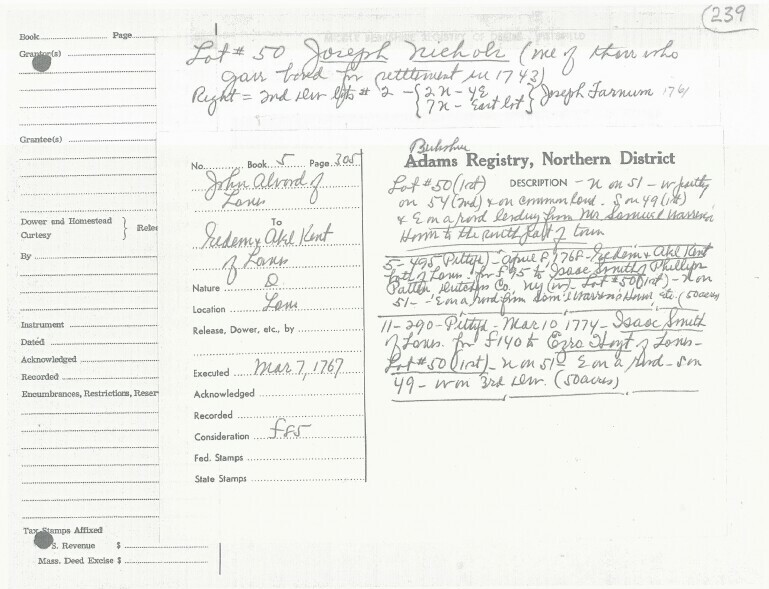 239
Book Page
Grantor(s)
Lot #50 Joseph Nichols (one of those who
gave bond for settlement in 1743)
Right = 2nd Div lots # 2 - { 2N - 4E
7N - East lot } Joseph Farnum 1761
Grantee(s)
Dower and Homestead
Curtesy } Relea
By
Instrument
Dated
Acknowledged
Recorded
Encumbrances, Restrictions, Reser
Tax Stamps Affixed
S. Revenue $
Mass. Deed Excise $
No. Book 5 Page 305
John Alvord of
Lanes
To
Gedem & Abel Kent
of Lanes
Nature D
Location Lane
Release, Dower, etc., by
Executed Mar 7, 1767
Acknowledged
Recorded
Consideration £85
Fed. Stamps
State Stamps
Berkshire
Adams Registry, Northern District
Lot #50 (1st) DESCRIPTION - N on 51 - W partly
on 54 (2nd) & on common land. S on 49 (1st)
& E on a road leading from Mr Samuel Warren's
House to the south part of town
5-495 Pitts - April 8, 1768 - Gedem & Abel Kent
both of Lanes for £95 to Isaac Smith of Phillips
Patten Dutches Co. NY - Lot #50 (1st) - N on
51 - E on a road from Sam'l Warren's House Etc. (50 acres)
11-290 - Pitts - Mar 10 1774 - Isaac Smith
of Lanes. for £140 to Ezra Hoyt of Lanes -
Lot #50 (1st) - N on 51 - E on a road - S on
49 - W on 3rd Div. (50 acres)